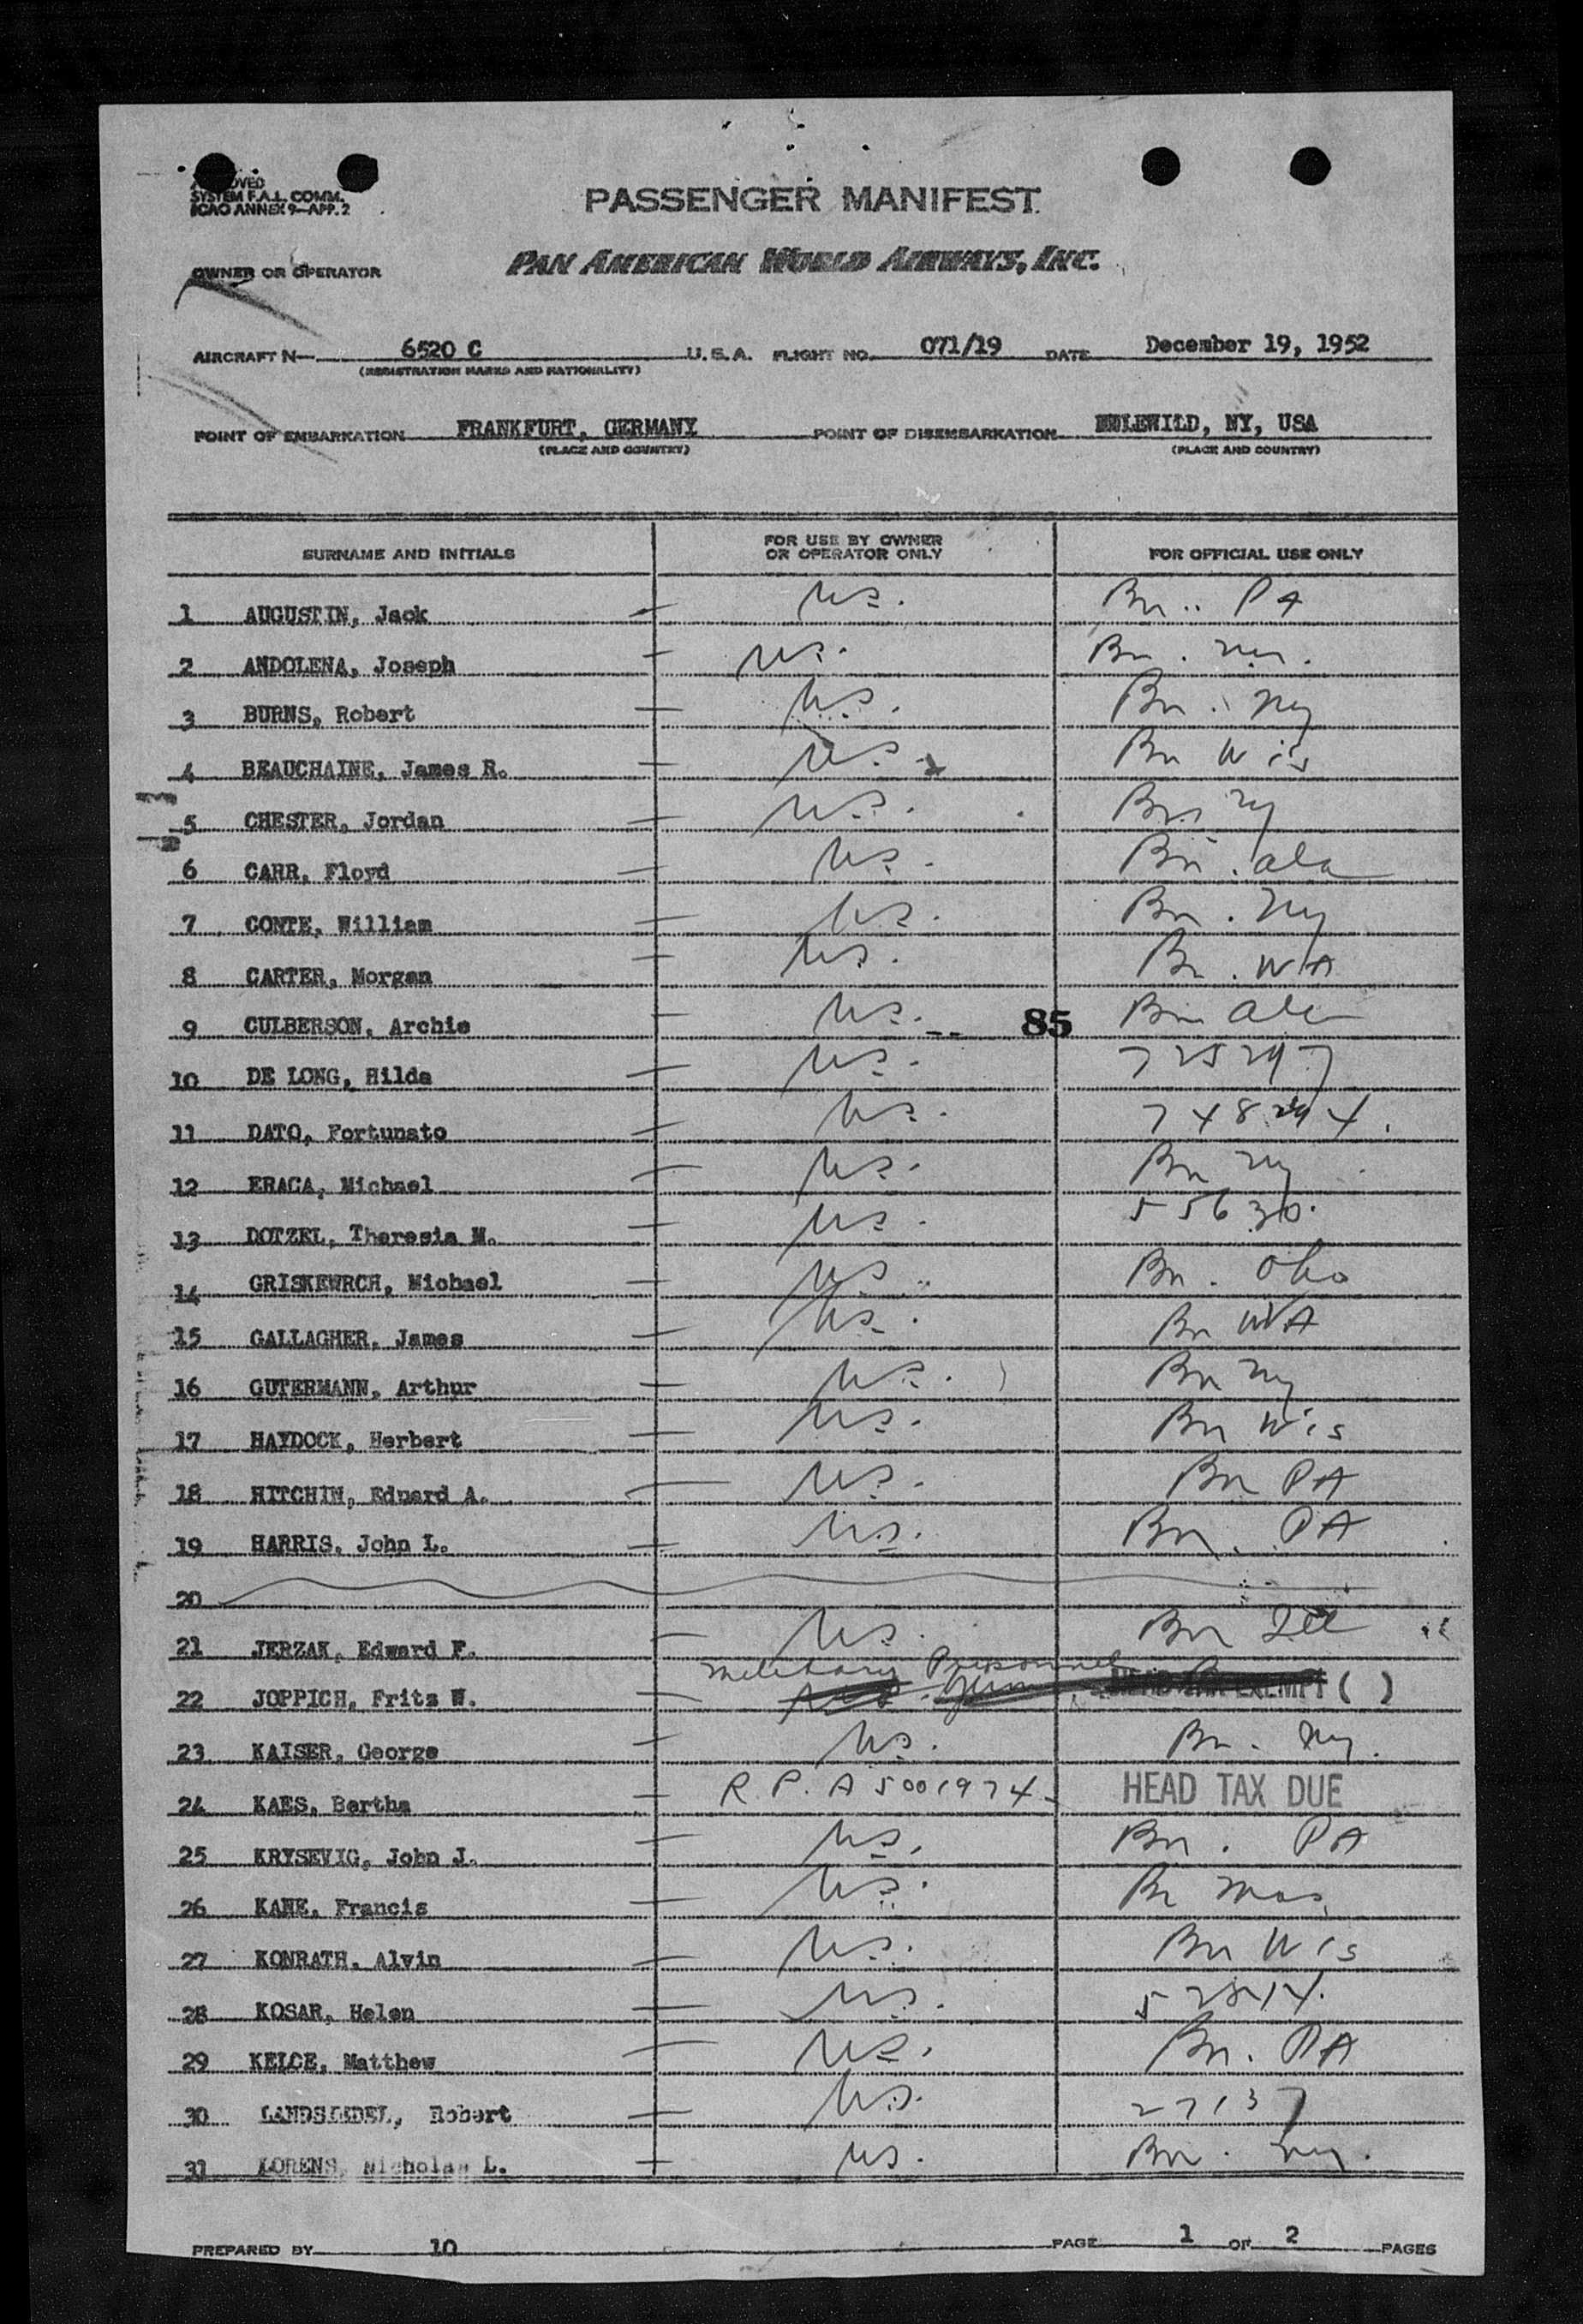 APPROVED
SYSTEM F.A.L. COMM.
ICAO ANNEX 9-APP. 2
PASSENGER MANIFEST
OWNER OR OPERATOR PAN AMERICAN WORLD AIRWAYS, INC.
AIRCRAFT N— 6520 C U.S.A. FLIGHT NO. 071/19 DATE December 19, 1952
(REGISTRATION MARKS AND NATIONALITY)
POINT OF EMBARKATION FRANKFURT, GERMANY POINT OF DISEMBARKATION IDLEWILD, NY, USA
(PLACE AND COUNTRY) (PLACE AND COUNTRY)
SURNAME AND INITIALS FOR USE BY OWNER OR OPERATOR ONLY FOR OFFICIAL USE ONLY
1 AUGUSTIN, Jack US. Bn.. PA
2 ANDOLENA, Joseph US. Bn.
3 BURNS, Robert US. Bn. Ny
4 BEAUCHAINE, James R. US. Bn Wis
5 CHESTER, Jordan US. Bn Ny
6 CARR, Floyd US. Bn. ala
7 CONTE, William US. Bn. Ny
8 CARTER, Morgan US. Bn. WA
9 CULBERSON, Archie US. 85 Bn ala
10 DE LONG, Hilda US.
11 DATO, Fortunato US.
12 ERACA, Michael US. Bn Ny
13 DOTZEL, Theresia M. US. 55630.
14 GRISKEWRCH, Michael US. Bn. Oho
15 GALLAGHER, James US. Bn WA
16 GUTERMANN, Arthur US. Bn Ny
17 HAYDOCK, Herbert US. Bn Wis
18 HITCHIN, Eduard A. US. Bn PA
19 HARRIS, John L. US. Bn. PA
20
21 JERZAK, Edward F. US. Bn Ill
22 JOPPICH, Fritz W. Military Personnel HEAD TAX EXEMPT ( )
23 KAISER, George US. Bn. Ny.
24 KAES, Bertha R.P. A5001974 HEAD TAX DUE
25 KRYSEVIG, John J. US. Bn. PA
26 KANE, Francis US. Bn Mas
27 KONRATH, Alvin US. Bn Wis
28 KOSAR, Helen US.
29 KELCE, Matthew US. Bn. PA
30 LANDSLEDEL, Robert US. 27137
31 LORENS, Nicholas L. US. Bn. Ny.
PREPARED BY 10 PAGE 1 OF 2 PAGES